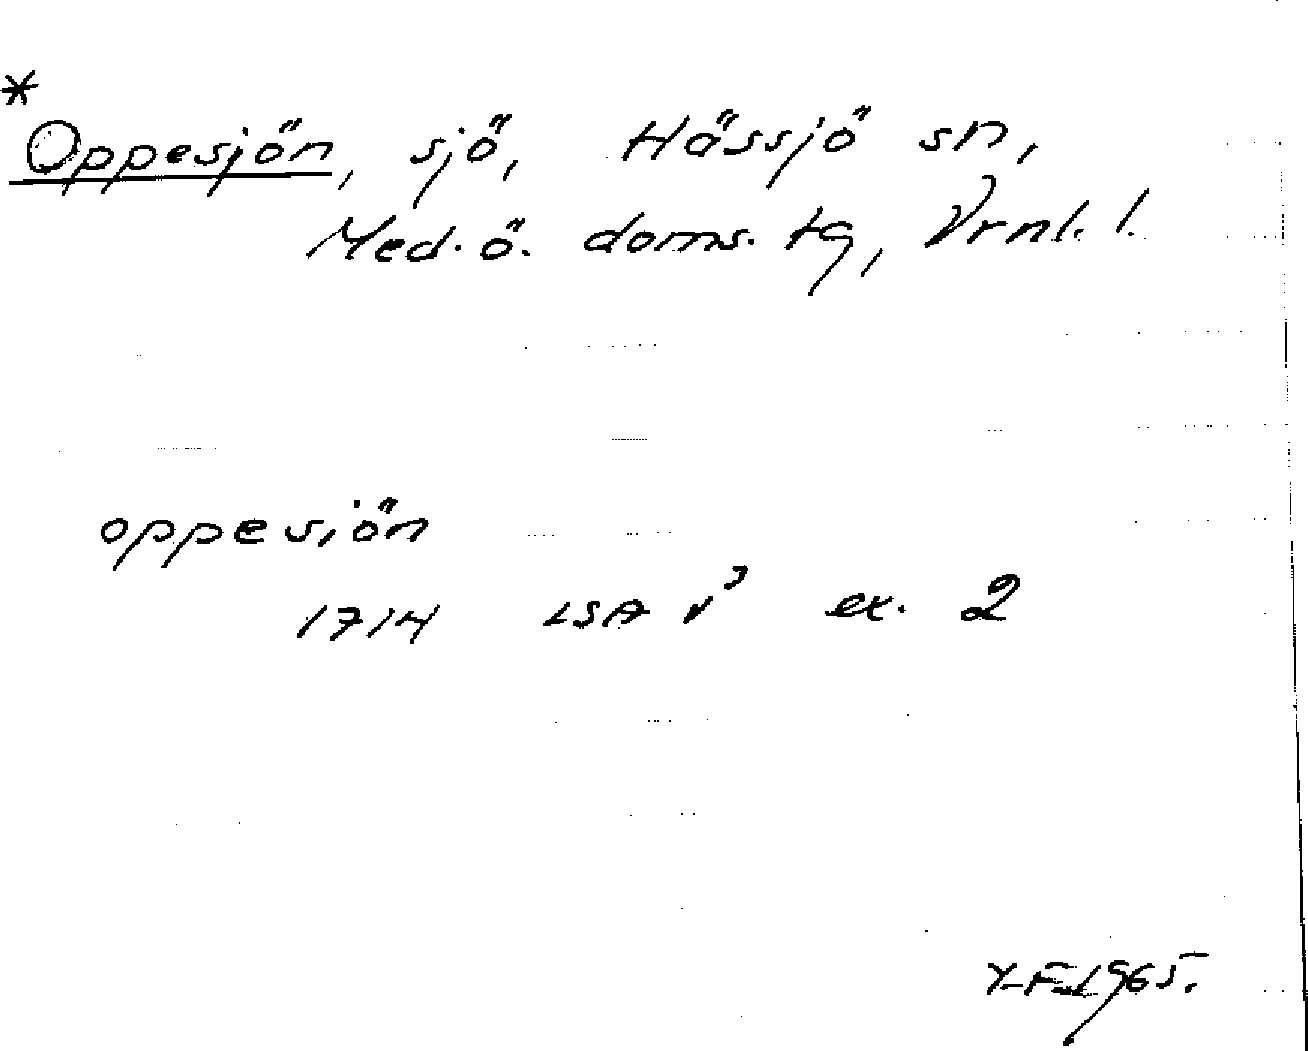 * Oppesjön, sjö, Hässjö sn,
Med. ö. doms. tg, Vrnl. l.
oppesiön
1714 LSA V³ ex. 2
Y-F. 1965.